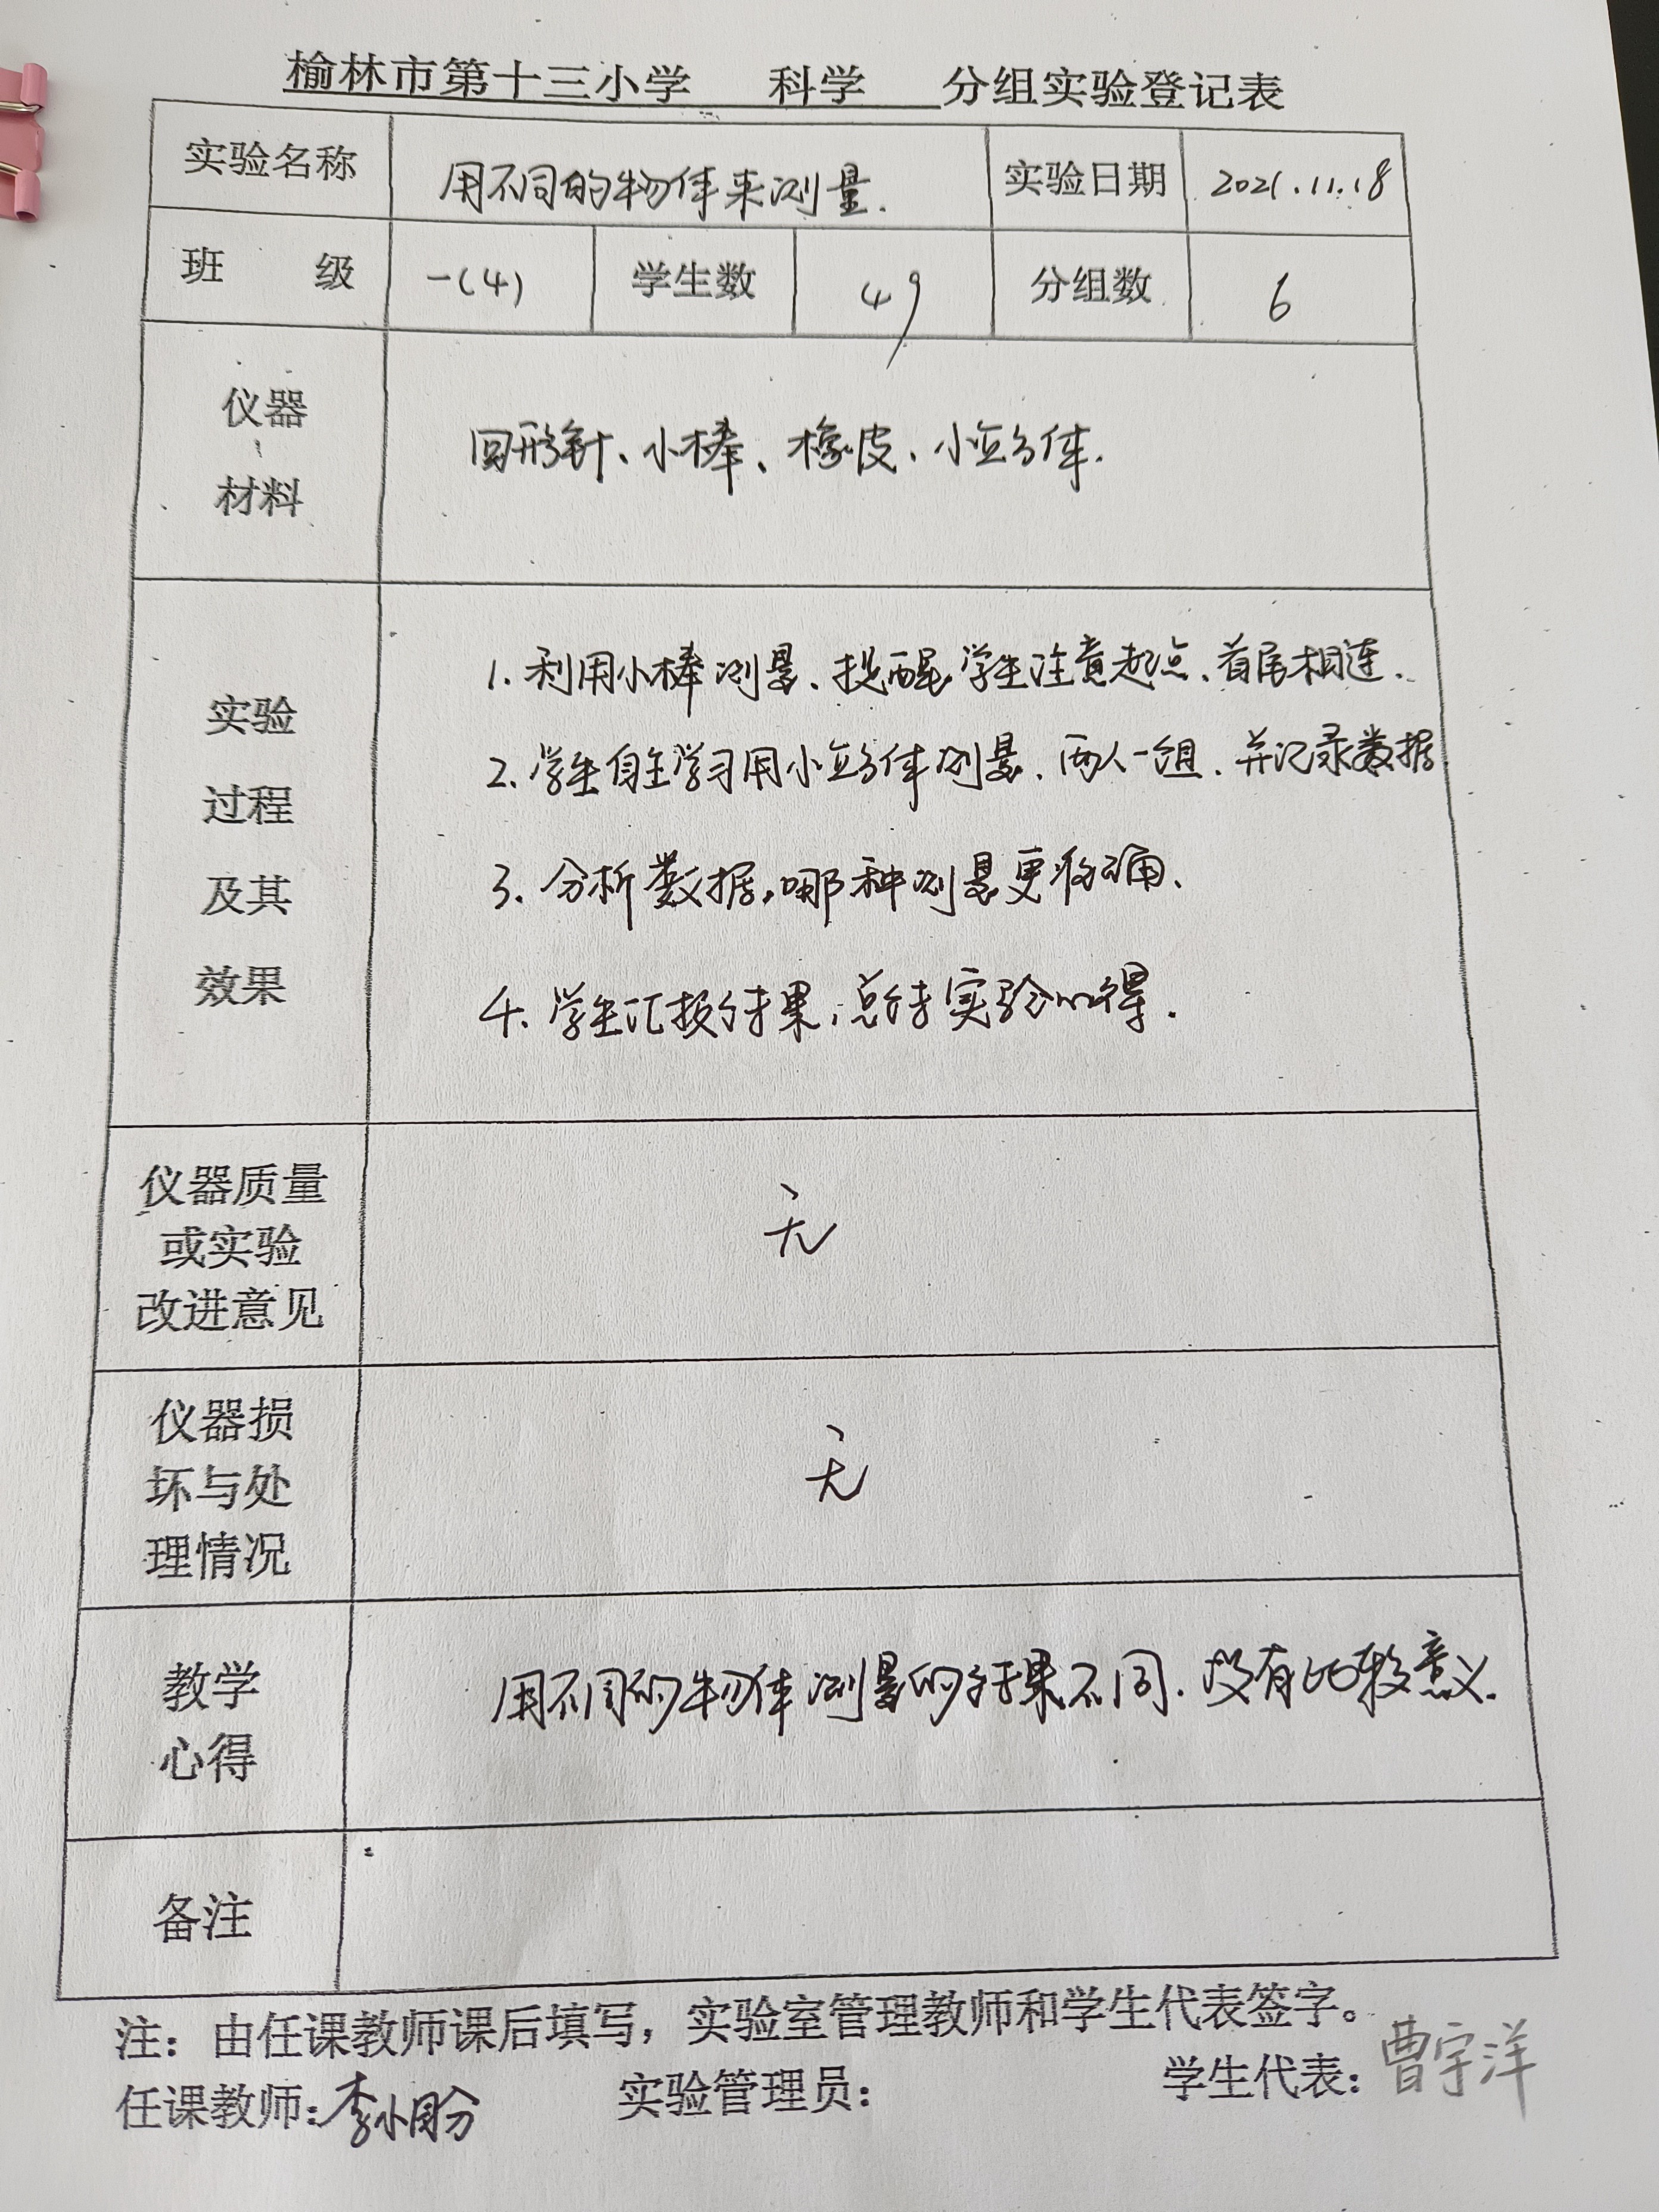 榆林市第十三小学 科学 分组实验登记表
实验名称 用不同的物体来测量. 实验日期 2021.11.18
班 级 一(4) 学生数 49 分组数 6
仪器
材料
回形针、小棒、橡皮、小立方体.
实验
过程
及其
效果
1. 利用小棒测量、提醒学生注意起点、首尾相连.
2. 学生自主学习用小立方体测量、两人一组、并记录数据
3. 分析数据,哪种测量更准确、
4. 学生汇报结果,总结实验心得.
仪器质量
或实验
改进意见
无
仪器损
坏与处
理情况
无
教学
心得
用不同的物体测量的结果不同. 没有比较意义.
备注
注：由任课教师课后填写，实验室管理教师和学生代表签字。
任课教师:李小盼 实验管理员: 学生代表: 曹宇洋